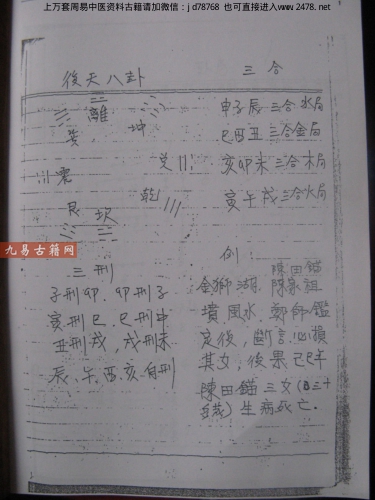 上万套周易中医资料古籍请加微信：jd78768 也可直接进入www.2478.net
後天八卦
離
巽
坤
震
兌
艮
坎
乾
三刑
子刑卯，卯刑子
寅刑巳，巳刑申
丑刑戌，戌刑未
辰、午、酉、亥、自刑
三合
申子辰三合水局
巳酉丑三合金局
亥卯未三合木局
寅午戌三合火局
例：
陳田錨
金獅湖，陳家祖
墳風水，鄭師鑑
定後，斷言必損
其女，後果己巳年
陳田錨三女
生病死亡．
九易古籍网